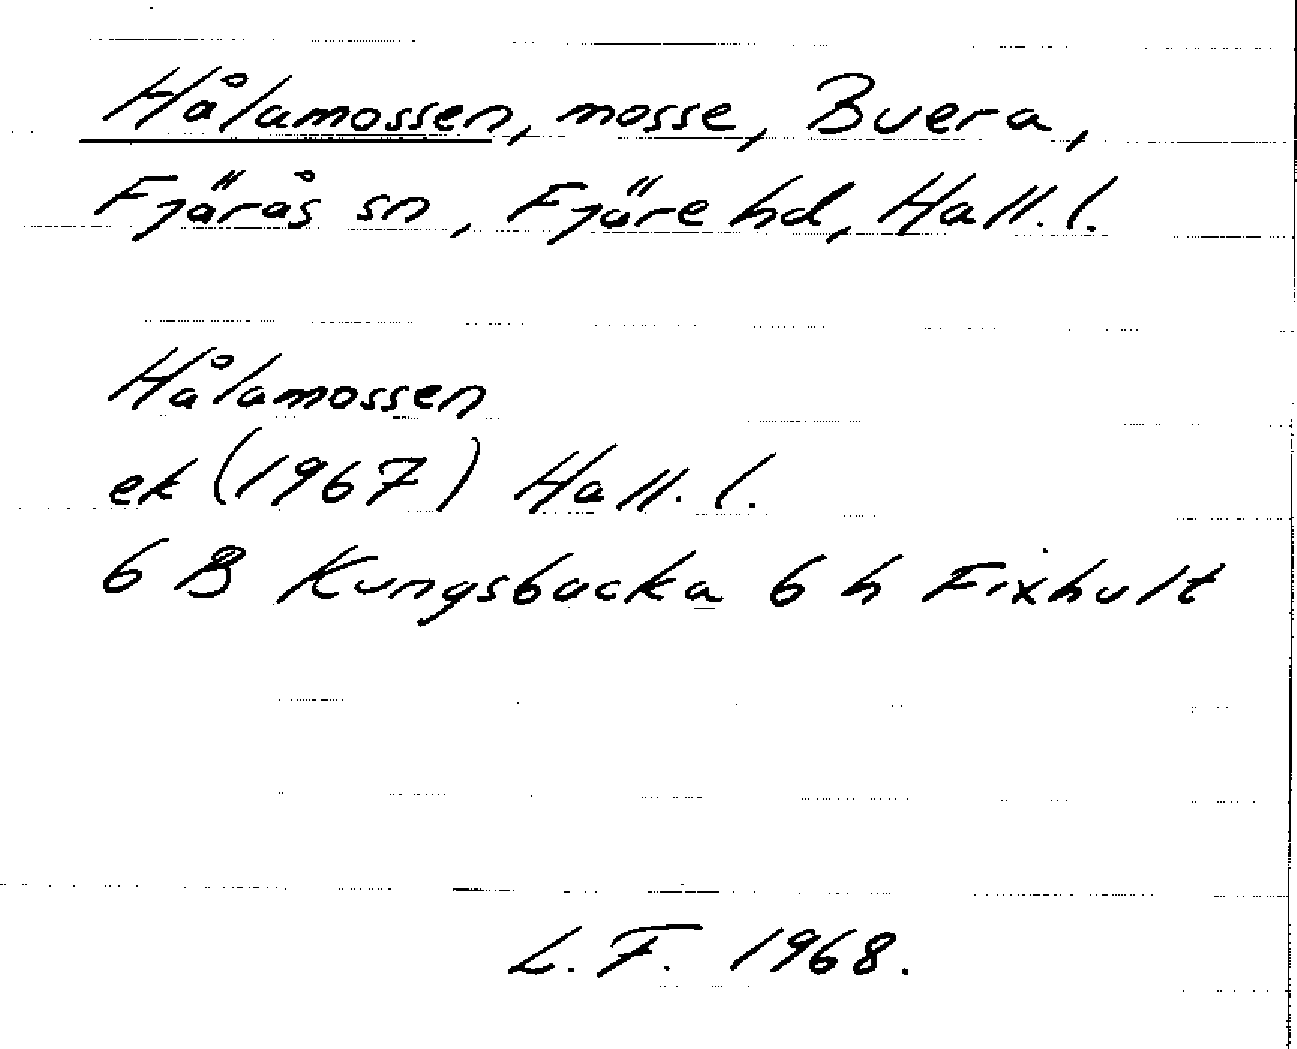 Hålamossen, mosse, Buera,
Fjärås sn, Fjäre hd, Hall. l.
Hålamossen
ek (1967) Hall. l.
6 B Kungsbacka 6 h Fixhult
L. F. 1968.